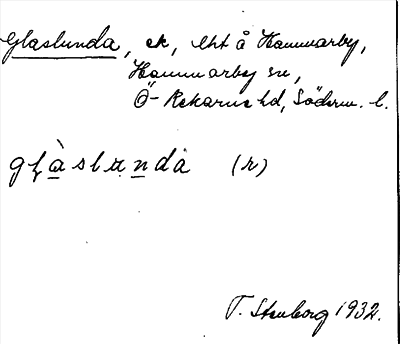 Glaslunda, ek, lht å Hammarby,
Hammarby sn,
Ö-Rekarne hd, Söderm. l.
gḷàslụnda (r)
T. Stenborg 1932.